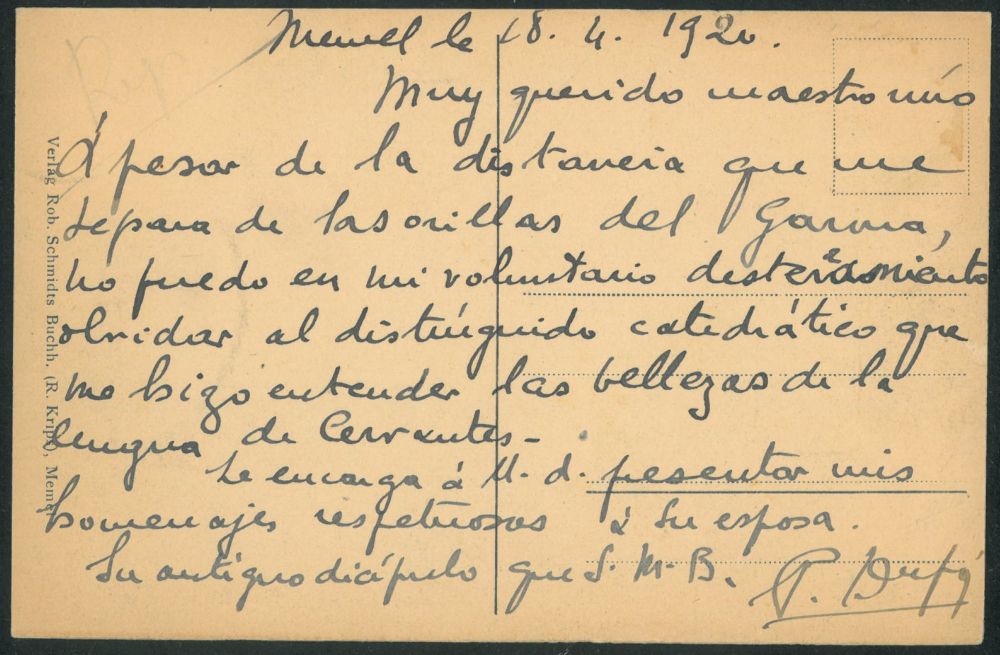 Memel le 18. 4. 1920.
Muy querido maestro mío
Á pesar de la distancia que me
separa de las orillas del Garona,
no puedo en mi voluntario desterramiento
olvidar al distínguido catedrático que
me hizo entender las bellezas de la
lengua de Cervantes-
Le encarga á U. d. pesentar mis
homenajes respetuosos á su esposa.
Su antiguo dicípulo que S. M. B.
P.
Verlag Rob. Schmidts Buchh. (R. Krips), Memel